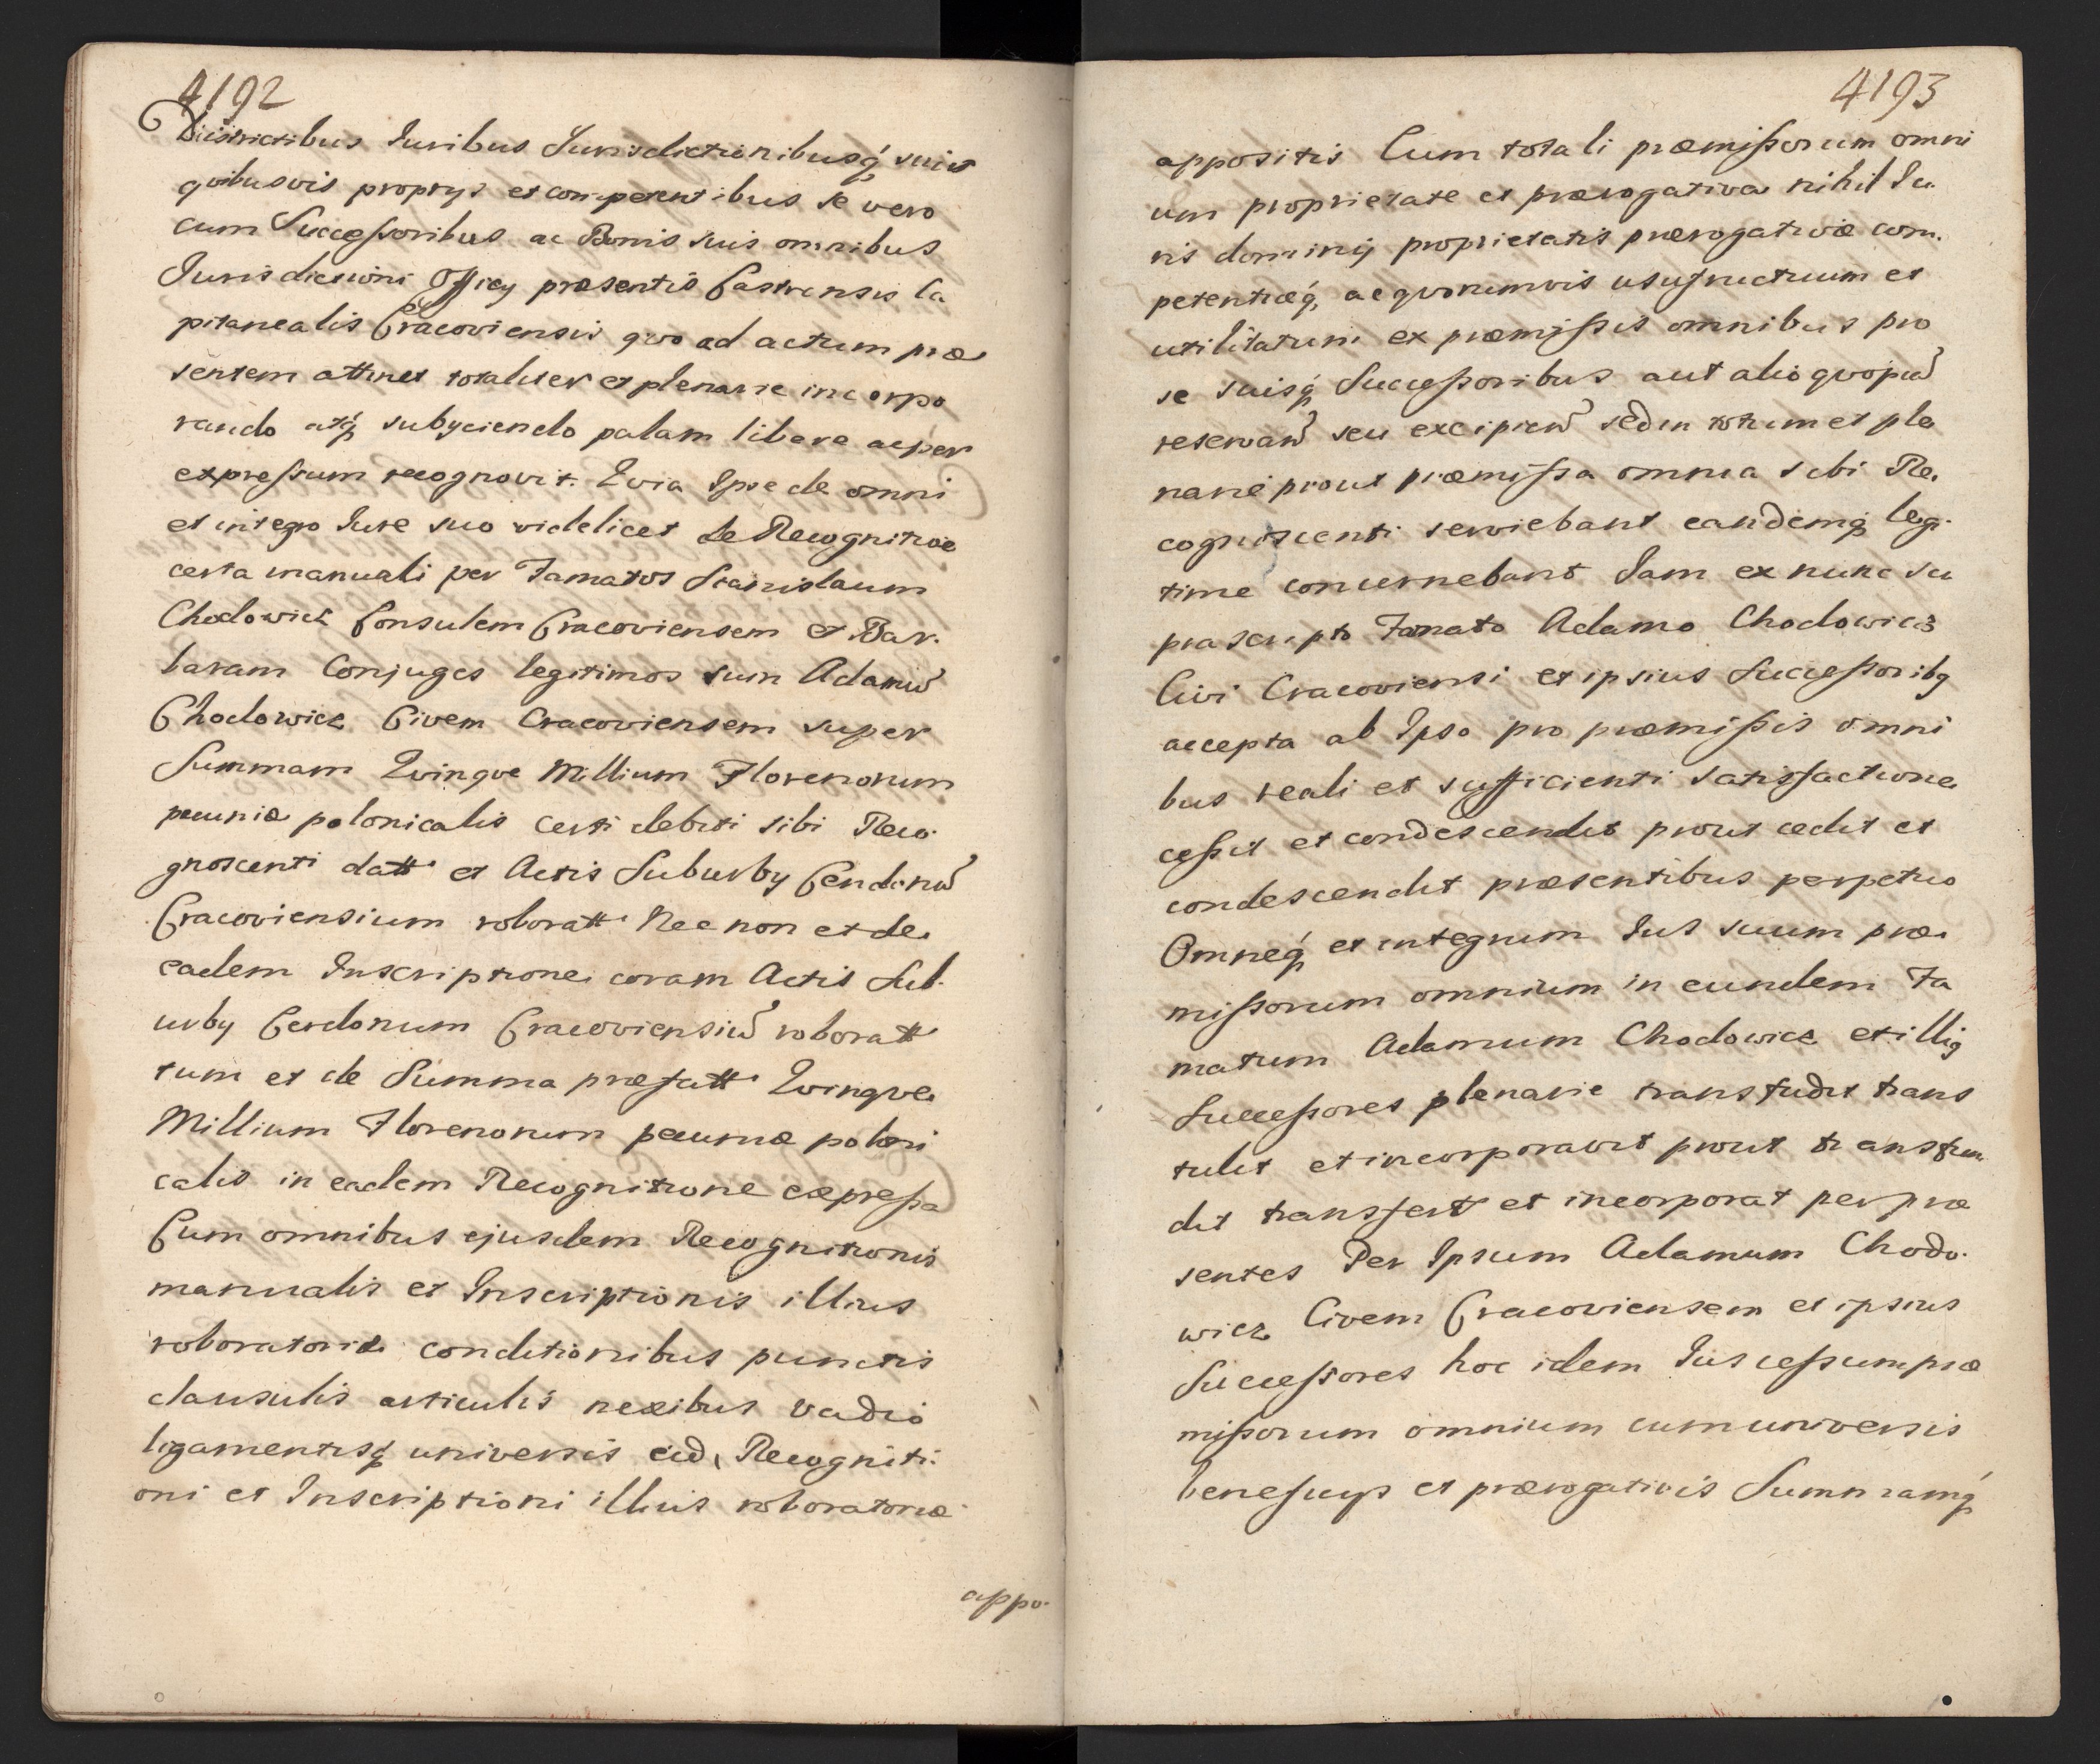 4192
Districtibus Iuribus Iurisdictionibusq́ suis
quibusvis proprys et competentibus se vero
cum Successoribus ac Bonis suis omnibus
Iurisdictioni Officy præsentis Castrensis Ca
pitanealis Cracoviensis quo ad actum præ
sentem attinet totaliter et plenarie incorpo
rando atq́ subyciendo palam libere ac per
expressum recognovit. Qvia Ipse de omni
et integro Iure suo videlicet de Recognitioe
certa manuali per Famatos Stanislaum
Chodowicz Consulem Cracoviensem et Bar.
baram Conjuges legitimos tum Adamu͂
Chodowicz Civem Cracoviensem super
Summam Qvinqve Millium Florenorum
pecuniæ polonicalis certi debiti sibi Reco.
gnoscenti datt. et Actis Suburby Cerdonu͂
Cracoviensium roboratt. Nec non et de
eadem Inscriptione coram Actis Sub.
urby Cerdonum Cracoviensiu͂ roboratt
tum et de Summa præfatt. Qvinqve
Millium Florenorum pecuniæ poloni
calis in eadem Recognitione expressa
Cum omnibus ejusdem Recognitionis
manualis et Inscriptionis illius
roboratoriæ conditionibus punctis
clausulis articulis nexibus vadio
ligamentisq́ universis eid. Recogniti.
oni et Inscriptioni illius roboratoriæ
appo.
4193
appositis Cum totali præmissorum omni
um proprietate et prærogativa nihil Iu.
ris dominij proprietatis prærogativæ com.
petentiæq́, ac quorumvis usufructuum et
utilitatum ex præmissis omnibus pro
se suisq́ Successoribus aut alio quopia͂
reservan͂ seu excipien͂ sed in totum et ple
narie prout præmissa omnia sibi Re.
cognoscenti serviebant eandemq́ legi.
time concernebant Iam ex nunc su
prascripto Famato Adamo Chodowicz
Civi Cracoviensi et ipsius Successoribq
accepta ab Ipso pro præmissis omni
bus reali et sufficienti satisfactione
cessit et condescendit prout cedit et
condescendit præsentibus perpetuo
Omneq́ et integrum Ius suum præ.
missorum omnium in eundem Fa
matum Adamum Chodowicz et illiq
Successores plenarie transfudit trans
tulit et incorporavit prout transfun
dit transfert et incorporat per præ
sentes Per Ipsum Adamum Chodo.
wicz Civem Cracoviensem et ipsius
Successores hoc idem Ius cessum præ
missorum omnium cum universis
beneficys et prærogativis Summamq́